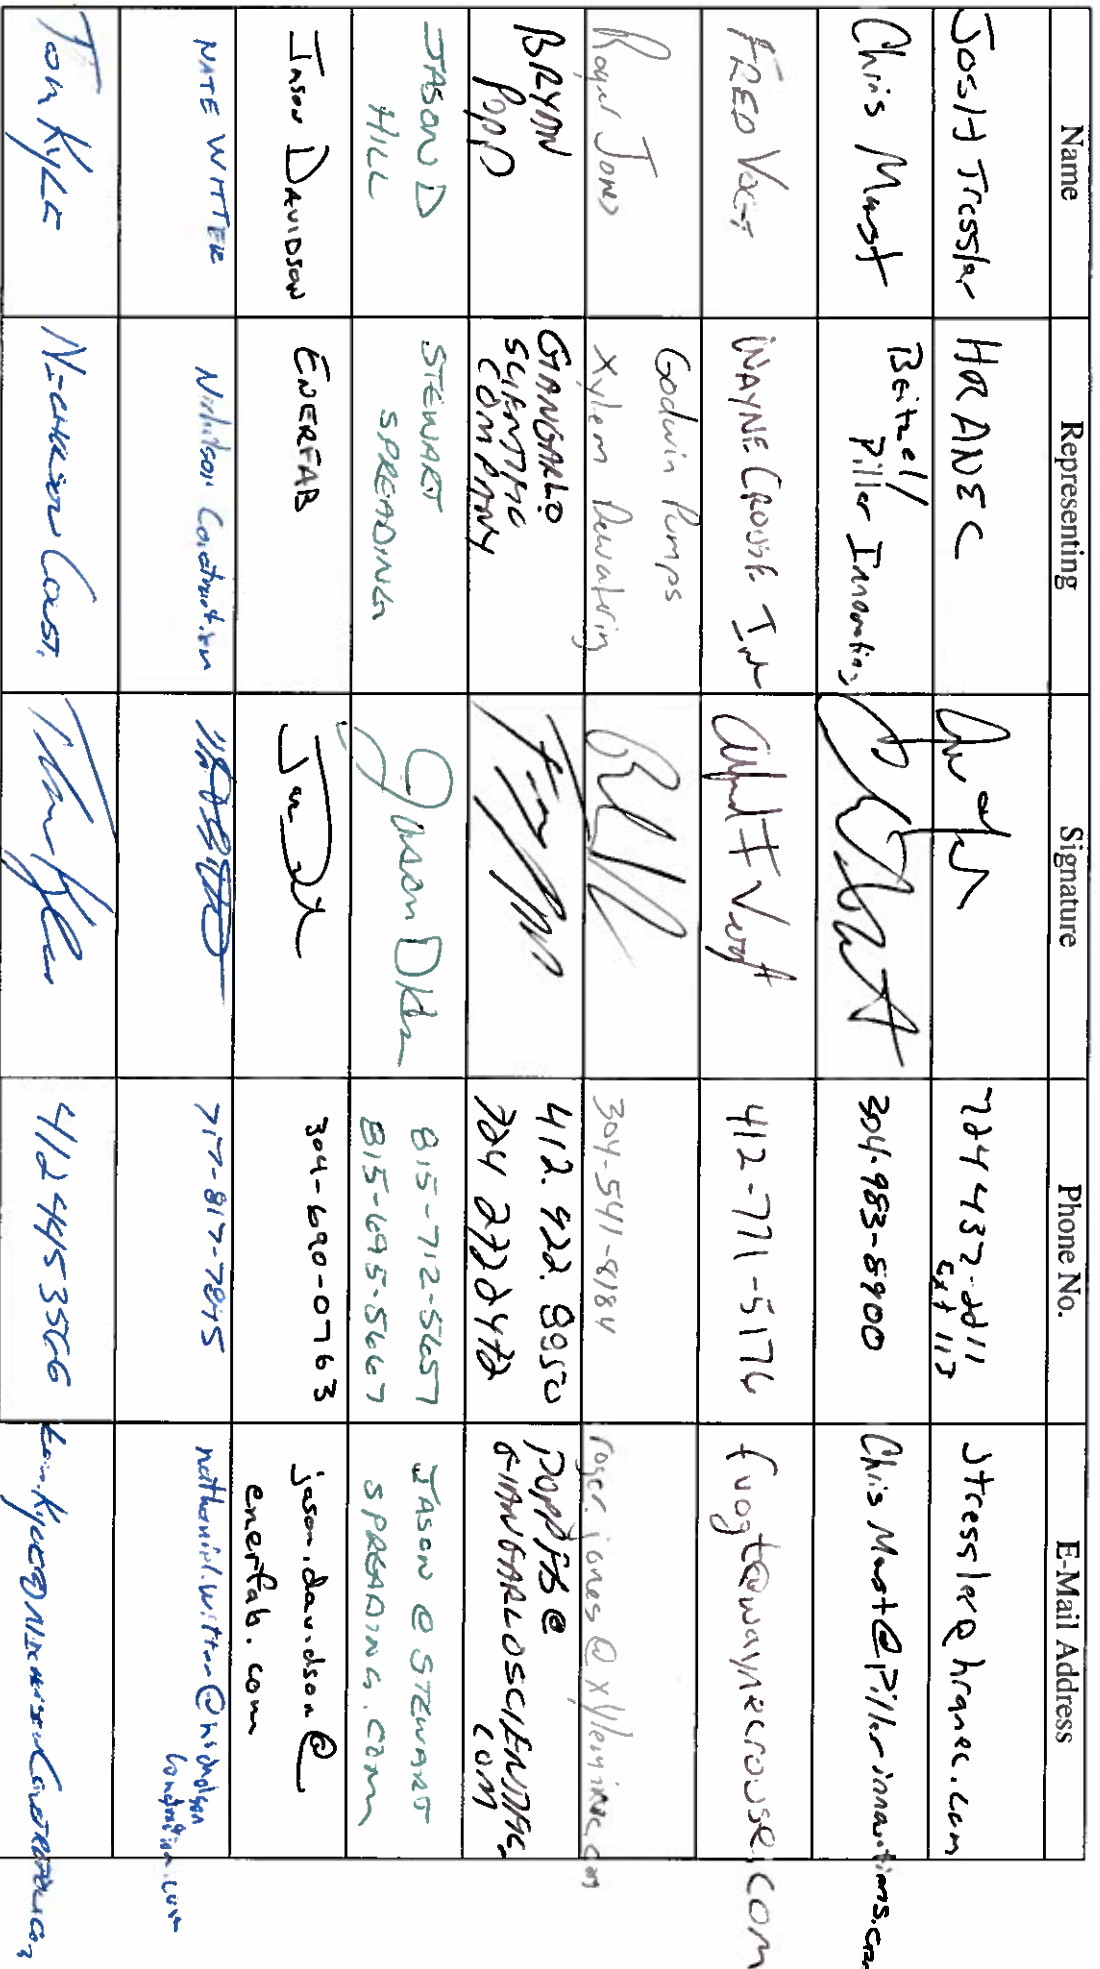 Name Representing Signature Phone No. E-Mail Address
JOSH Tresslar HRANEC 724 437-2211 Ext 113 jtressler@hranec.com
Chris Must Beitzel/ Piller Innovations 304-983-8900 Chris Must@Pillarinnovations.com
FRED VOGT WAYNE CROUSE Inc 412-771-5176 fvogt@waynecrouse.com
Roger Jones Godwin Pumps Xylem Dewatering 304-541-8184 roger.jones@xyleminc.com
BRYAN POPP GIANGARLO SCIENTIFIC COMPANY 412.922.8850 724 272 2472 POPPB@ GIANGARLOSCIENTIFIC. COM
JASON D HILL STEWART SPREADING Jason D Hill 815-712-5657 815-695-5667 JASON @ STEWART SPREADING.COM
JASON DAVIDSON ENERFAB 304-690-0763 jason.davidson@ enerfab.com
NATE WITTER Nicholson Construction 717-817-7875 nathaniel.witter@nicholson construction.com
Tom KYLE NICHOLSON CONST. 412 445 3566